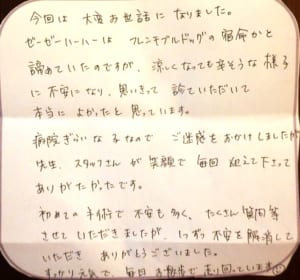 今回は 大変お世話になりました。
ゼーゼーハーハーは フレンチブルドッグの宿命かと
諦めていたのですが、涼しくなっても辛そうな様子
に不安になり、思いきって 診ていただいて
本当に よかったと思っています。
病院ぎらいな子なので ご迷惑をおかけしましたが
先生、スタッフさんが 笑顔で 毎回 迎えて下さって
ありがたかったです。
初めての手術で不安も多く、たくさん質問等
させていただきましたが、1つずつ不安を解消して
いただき ありがとうございました。
すっかり元気で、毎日 お散歩で走り回っています